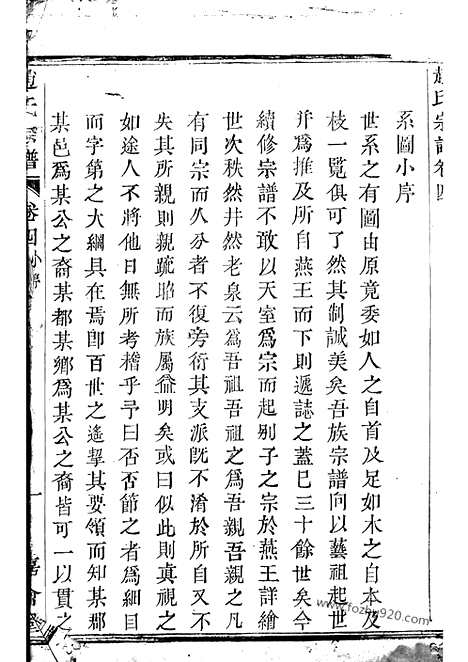 趙氏宗譜卷四
系圖小序
世系之有圖由原竟委如人之自首及足如木之自本及
枝一覽俱可了然其制誠美矣吾族宗譜向以藝祖起世
并爲推及所自燕王而下則遞誌之蓋已三十餘世矣今
續修宗譜不敢以天室爲宗而起别子之宗於燕王詳繪
世次秩然井然老泉云爲吾祖吾祖之爲吾親吾親之凡
有同宗而久分者不復旁衍其支派旣不淆於所自又不
失其所親則親疏昭而族屬益明矣或曰似此則真視之
如途人不將他日無所考稽乎予曰否否節之者爲細目
而字第之大綱具在焉卽百世之遙挈其要領而知某郡
某邑爲某公之裔某都某鄉爲某公之裔皆可一以貫之
趙氏宗譜
卷四
小序
一
www.fozhu920.com